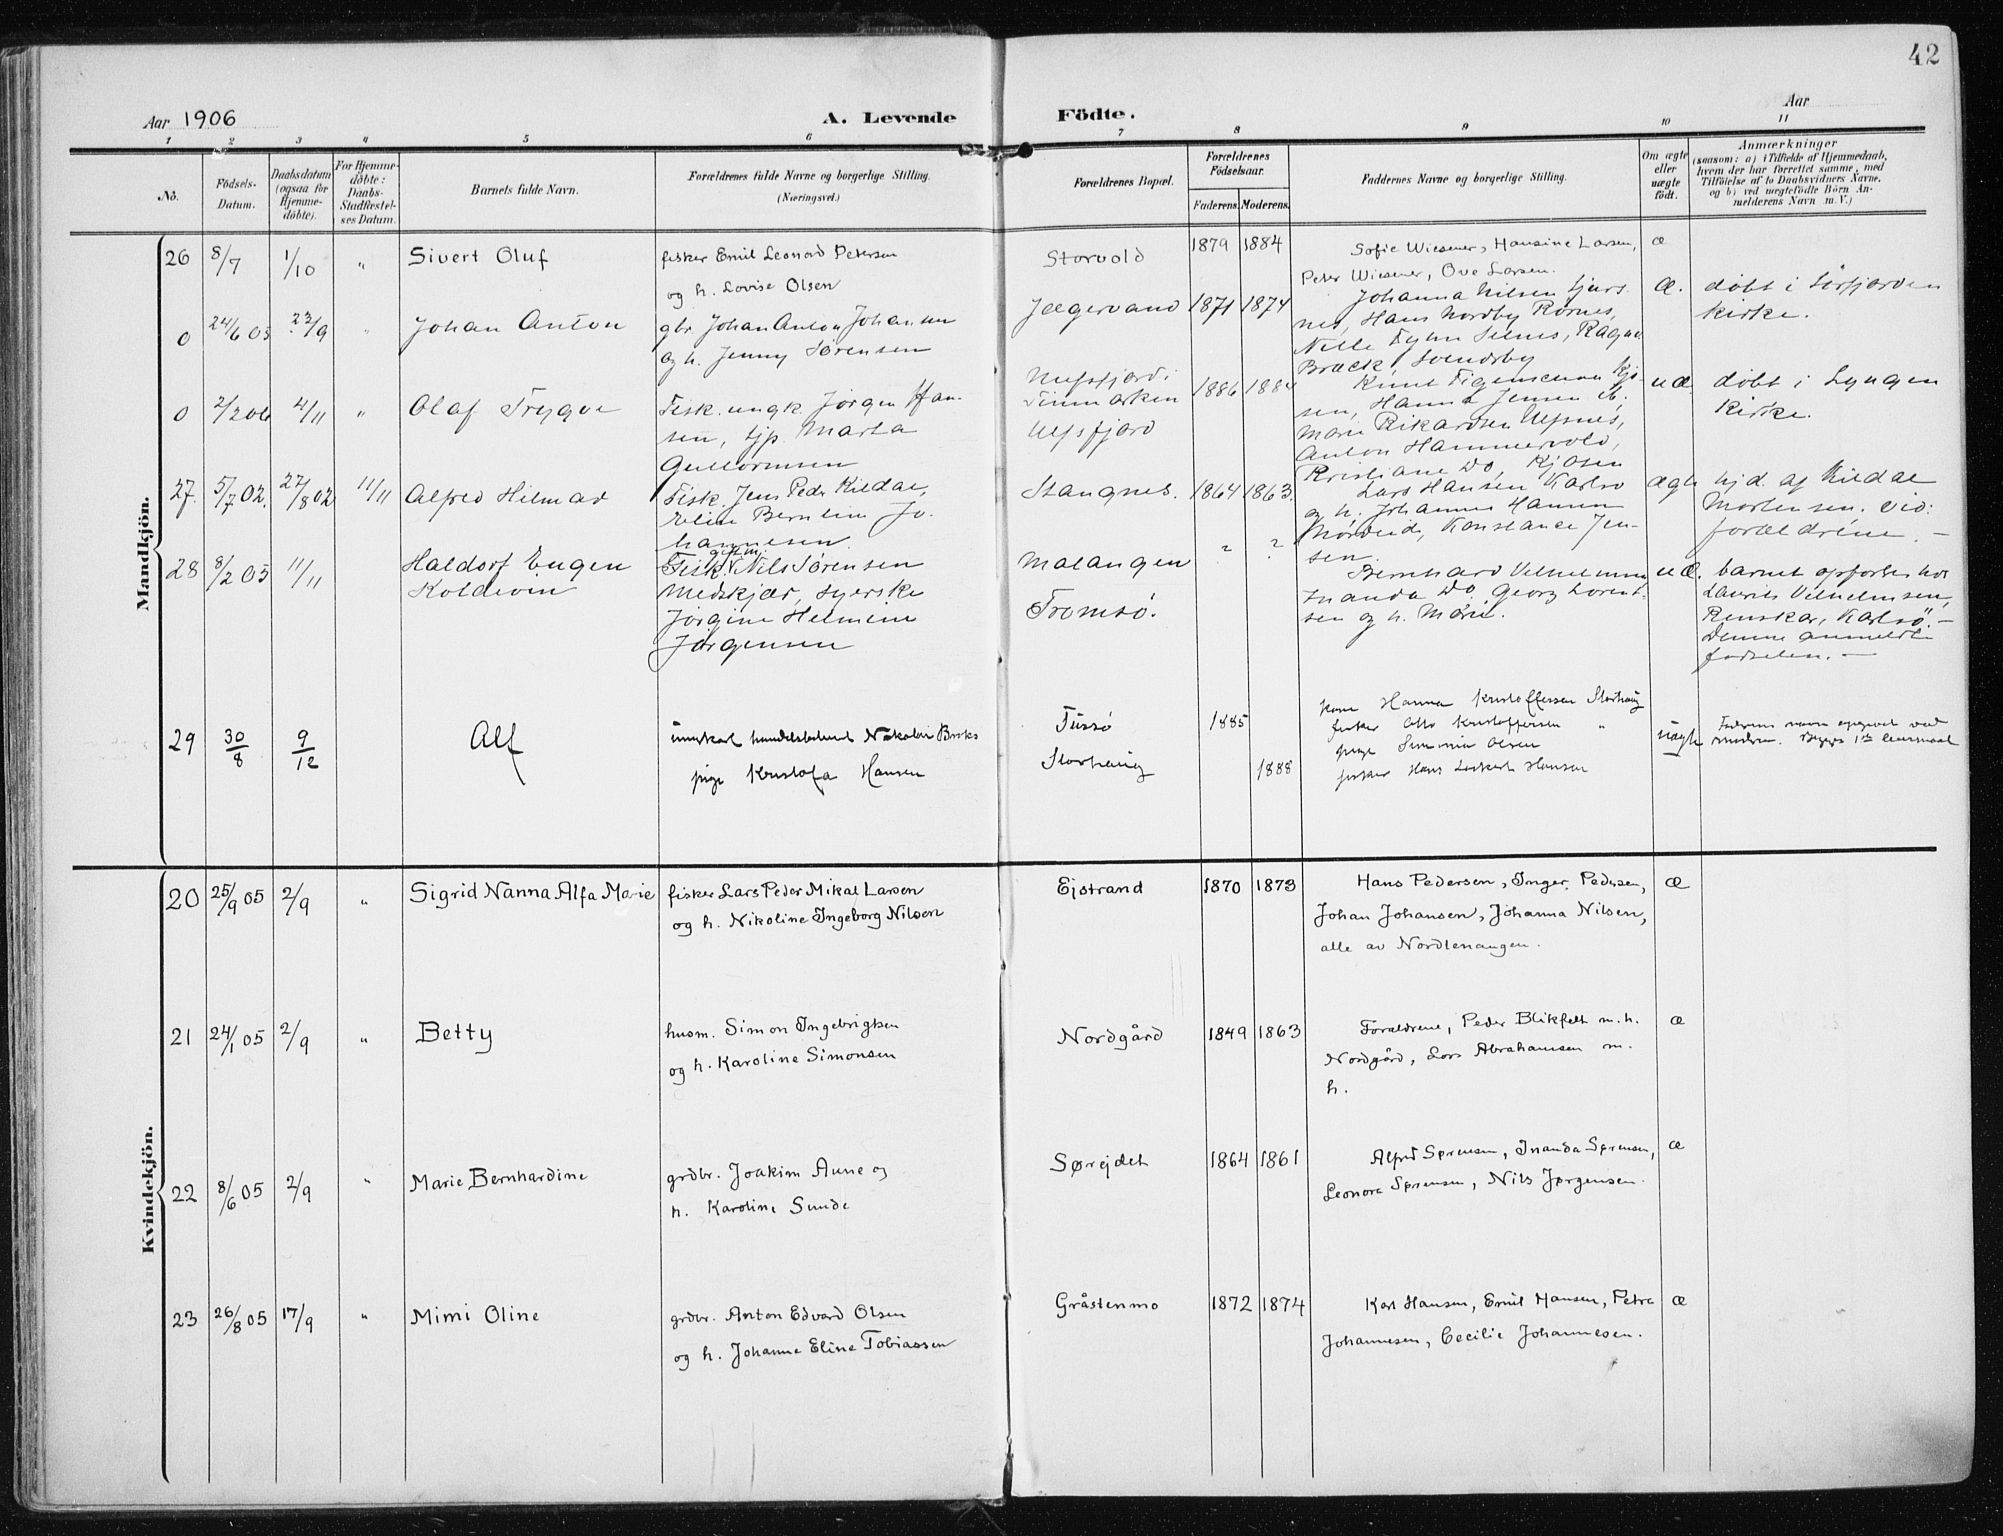 42
Aar 1906
A. Levende
Födte.
Aar
1 2 3 4 5 6 7 8 9 10 11
No.
Födsels-
Datum.
Daabsdatum
(ogsaa for
Hjemme-
döbte).
For Hjemme-
döbte:
Daabs-
Stadfæstel-
ses Datum.
Barnets fulde Navn.
Forældrenes fulde Navne og borgerlige Stilling.
(Næringsvei.)
Forældrenes Bopæl.
Forældrenes
Födselsaar.
Faderens. Moderens.
Faddernes Navne og borgerlige Stilling.
Om ægte
eller
uægte
födt.
Anmærkninger
(saasom: a) i Tilfælde af Hjemmedaab,
hvem der har forrettet samme, med
Tilföielse af to Daabsvidners Navne,
og b) ved uægtefödte Börn An-
melderens Navn m. V.)
Mandkjön.
26 8/7 1/10 " Sivert Oluf
fisker Emil Leonard Petersen
og h. Lovise Olsen
Storvold
1879 1884
Sofie Wiesener, Hansine Larsen,
Peter Wiesener, Ove Larsen.
æ
0 24/6 05 23/9 " Johan Anton
gbr. Johan Anton Johansen
og h. Jenny Sørensen
Jægervand
1871 1874
Johanna Nilsen
nes, Hans Nordby Rørnes,
Bræck, Svendsby
æ.
døbt i Sørfjorden
kirke.
0 2/2 06 4/11 " Olaf Trygve
Fisk. ungk. Jørgen Han-
sen, tjp. Marta
Guttormsen
Ulfsfjord i
Finmarken
Ulfsfjord
1886 1884
sen, Hanna Jensen
Marie Rikardsen Ulfsnes,
Anton Hammervold,
Kristiane Do, Kjosen
uæ.
døbt i Lyngen
Kirke.
27. 5/7 02. 27/8 02 11/11 Alfred Hilmar
Fisk. Jens Peder Kildal,
Eline Bernlin Jo-
hannesen.
Stangnes.
1864 1863.
Lars Hansen Karlsø
og h. Johanna Hansen
Konstance Jen-
sen.
ægte
hjd. af Kildal
Mortensen. Vid:
forældrene. —
28 8/2 05 11/11
Haldorf Eugen
Koldevin
gift m.
Fisk. Nils Sørensen
Medskjær, syerske
Jørgine Helmine
Jørgensen
Malangen
Tromsø.
? ?
Bernhard Vilhelmsen,
Inanda Do, Georg Lorent-
sen og h. Marie.
uæ.
barnet opfostres hos
Laurits Vilhelmsen,
Renskar, Karlsö. —
Denne anmeldte
fødselen. —
29 30/8 9/12 Alf
ungkarl handelsbetjent Nikolai Berks
pige Kristofa Hansen
Tussø
Storhaug
1885
1888
kone Hanna Kristoffersen Storhaug
fisker Otto Kristoffersen "
pige Olsen
fisker Hans Hansen
uægte
Faderens navn opgivet ved
moderen.
Kvindekjön.
20 25/9 05 2/9 " Sigrid Nanna Alfa Marie
fisker Lars Peder Mikal Larsen
og h. Nikoline Ingeborg Nilsen
Ejstrand
1870 1873
Hans Pedersen, Inger Pedersen,
Johan Johansen, Johanna Nilsen,
alle av Nordlenangen.
æ
21 24/1 05 2/9 " Betty
husm. Simon Ingebrigtsen
og h. Karoline Simonsen
Nordgård
1849 1863
Forældrene, Peder Blikfelt m. h.
Nordgård, Lars Abrahamsen m.
h.
æ
22 8/6 05 2/9 " Marie Bernhardine
grdbr. Joakim Aune og
h. Karoline Sunde
Sørejdet
1864 1861
Alfred Sørensen, Inanda Sørensen,
Leonora Sørensen, Nils Jørgensen.
æ
23 26/8 05 17/9 " Mimi Oline
grdbr. Anton Edvard Olsen
og h. Johanne Eline Tobiassen
Gråstenmo
1872 1874
Karl Hansen, Emil Hansen, Petra
Johannesen, Cecilie Johannesen.
æ